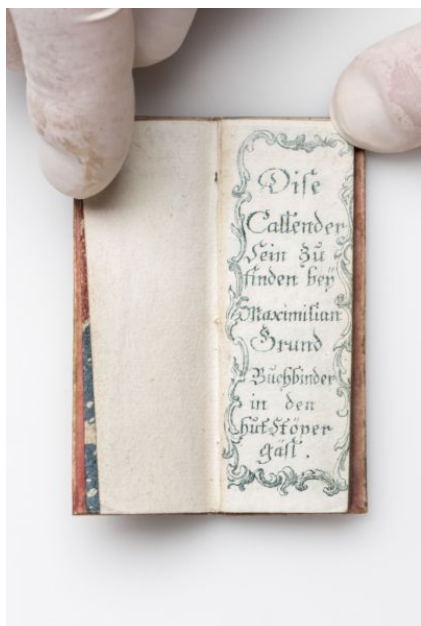 Dise
Callender
Sein Zu
finden beÿ
Maximilian
Grund
Buchbinder
in den
hutStöper
gässl.